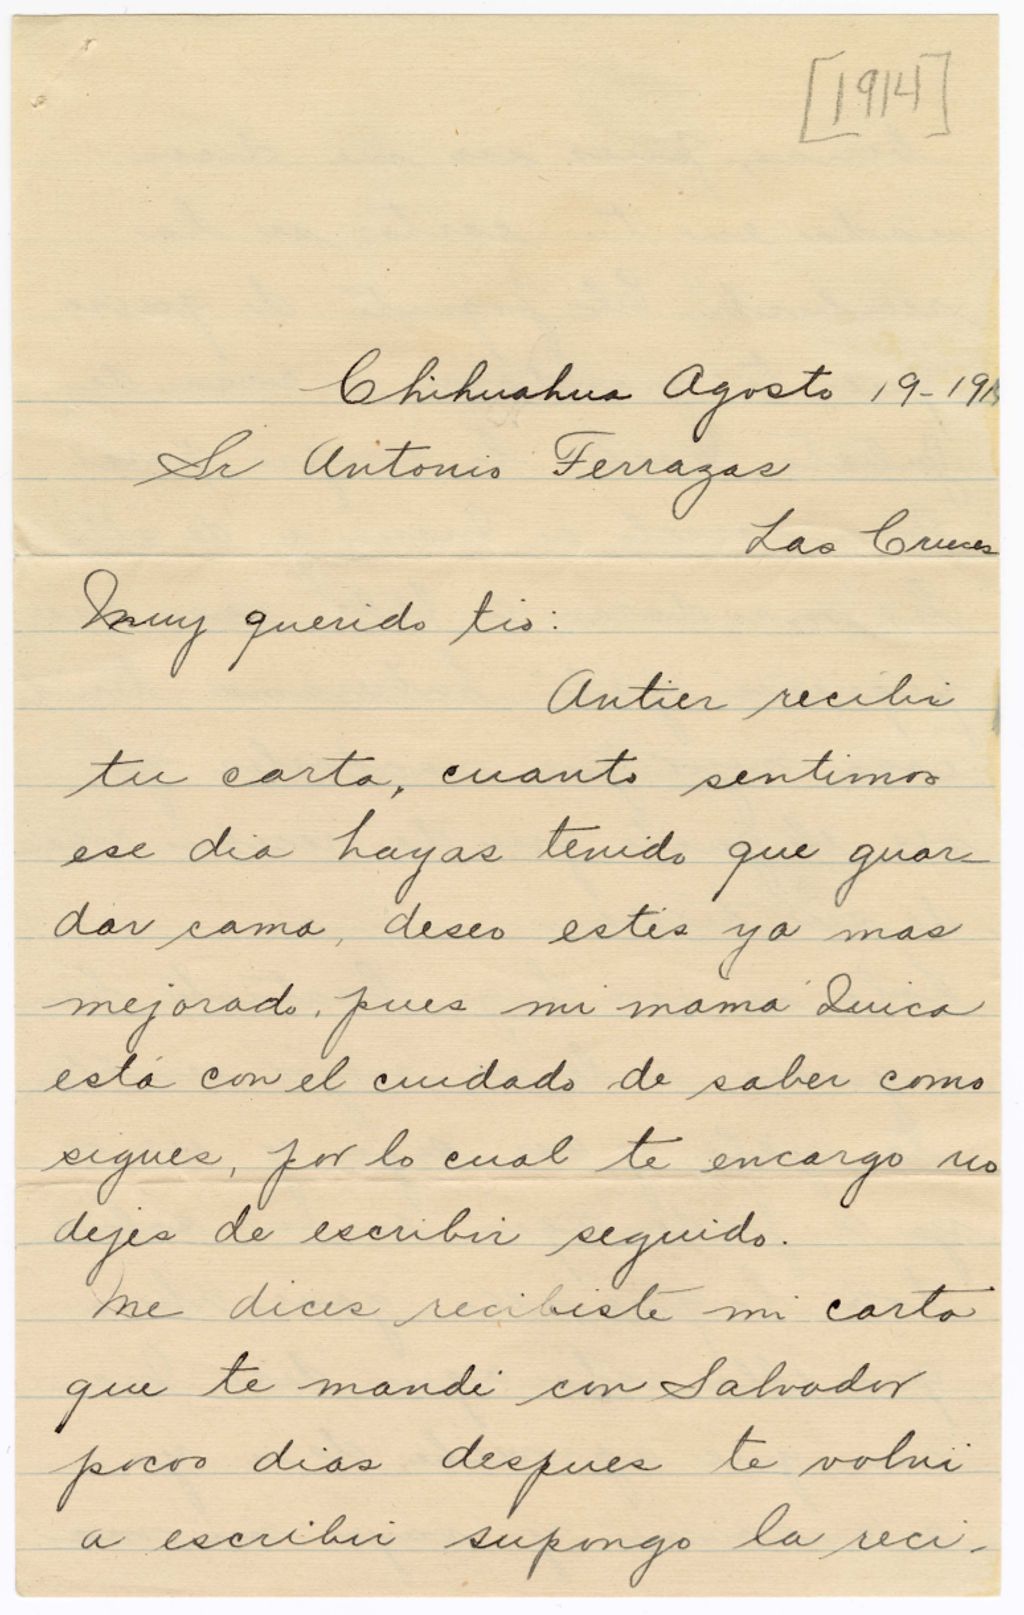 [1914]
Chihuahua Agosto 19-191
Sr Antonio Terrazas
Las Cruces
Muy querido tio:
Antier recibi
tu carta, cuanto sentimos
ese dia hayas tenido que guar-
dar cama, deseo estés ya mas
mejorado, pues mi mamá Quica
está con el cuidado de saber como
sigues, por lo cual te encargo no
dejes de escribir seguido.
Me dices recibiste mi carta
que te mandé con Salvador
pocos dias despues te volvi
a escribir supongo la reci-